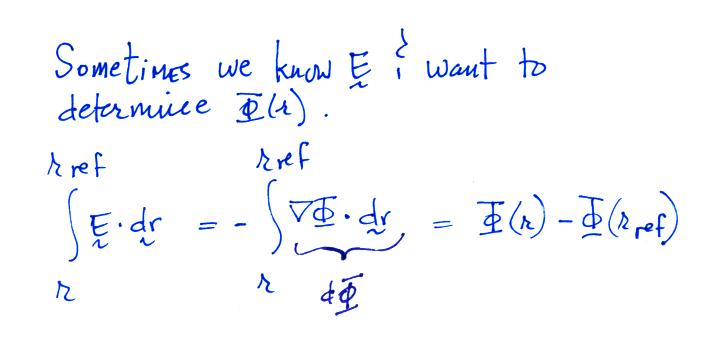 Sometimes we know Ḛ & want to
determine Φ(r).
∫_r^{r ref} Ḛ · dr̰ = - ∫_r^{r ref} ∇Φ · dr̰ = Φ(r) - Φ(r ref)
dΦ